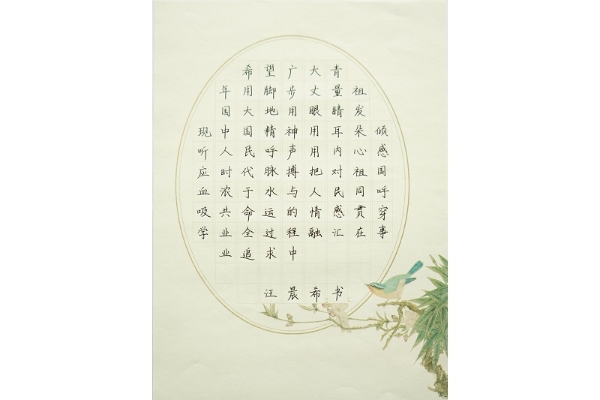 希望广大青
年用脚步丈量祖
国大地用眼睛发
现中国精神用耳朵倾
听人民呼声用内心感
应时代脉搏把对祖国
血浓于水与人民同呼
吸共命运的情感贯穿
学业全过程融汇在事
业追求中
汪晨希书